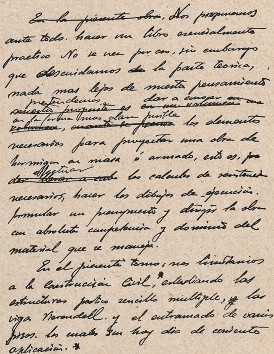 En la presente obra, Nos proponemos
ante todo hacer un libro esencialmente
practico. No se crea por eso, sin embargo
que descuidamos de la parte tecnica,
nada mas lejos de nuestro pensamiento
pretendemos dar a conocer en
en la forma mas clara posible los elementos
necesarios para proyectar una obra de
hormigon en masa ó armado, esto es,
aplicar los calculos de resistencia
necesarios, hacer los dibujos de ejecución,
formular un presupuesto y dirigir la obra
con absoluta competencia y dominio del
material que se maneja.
En el presente tomo, nos limitamos
a la Construcción Civil, estudiando las
estructuras portico sencillo multiple, las
vigas Vierendell y el entramado de varios
pisos. los cuales son hoy dia de corriente
aplicación.